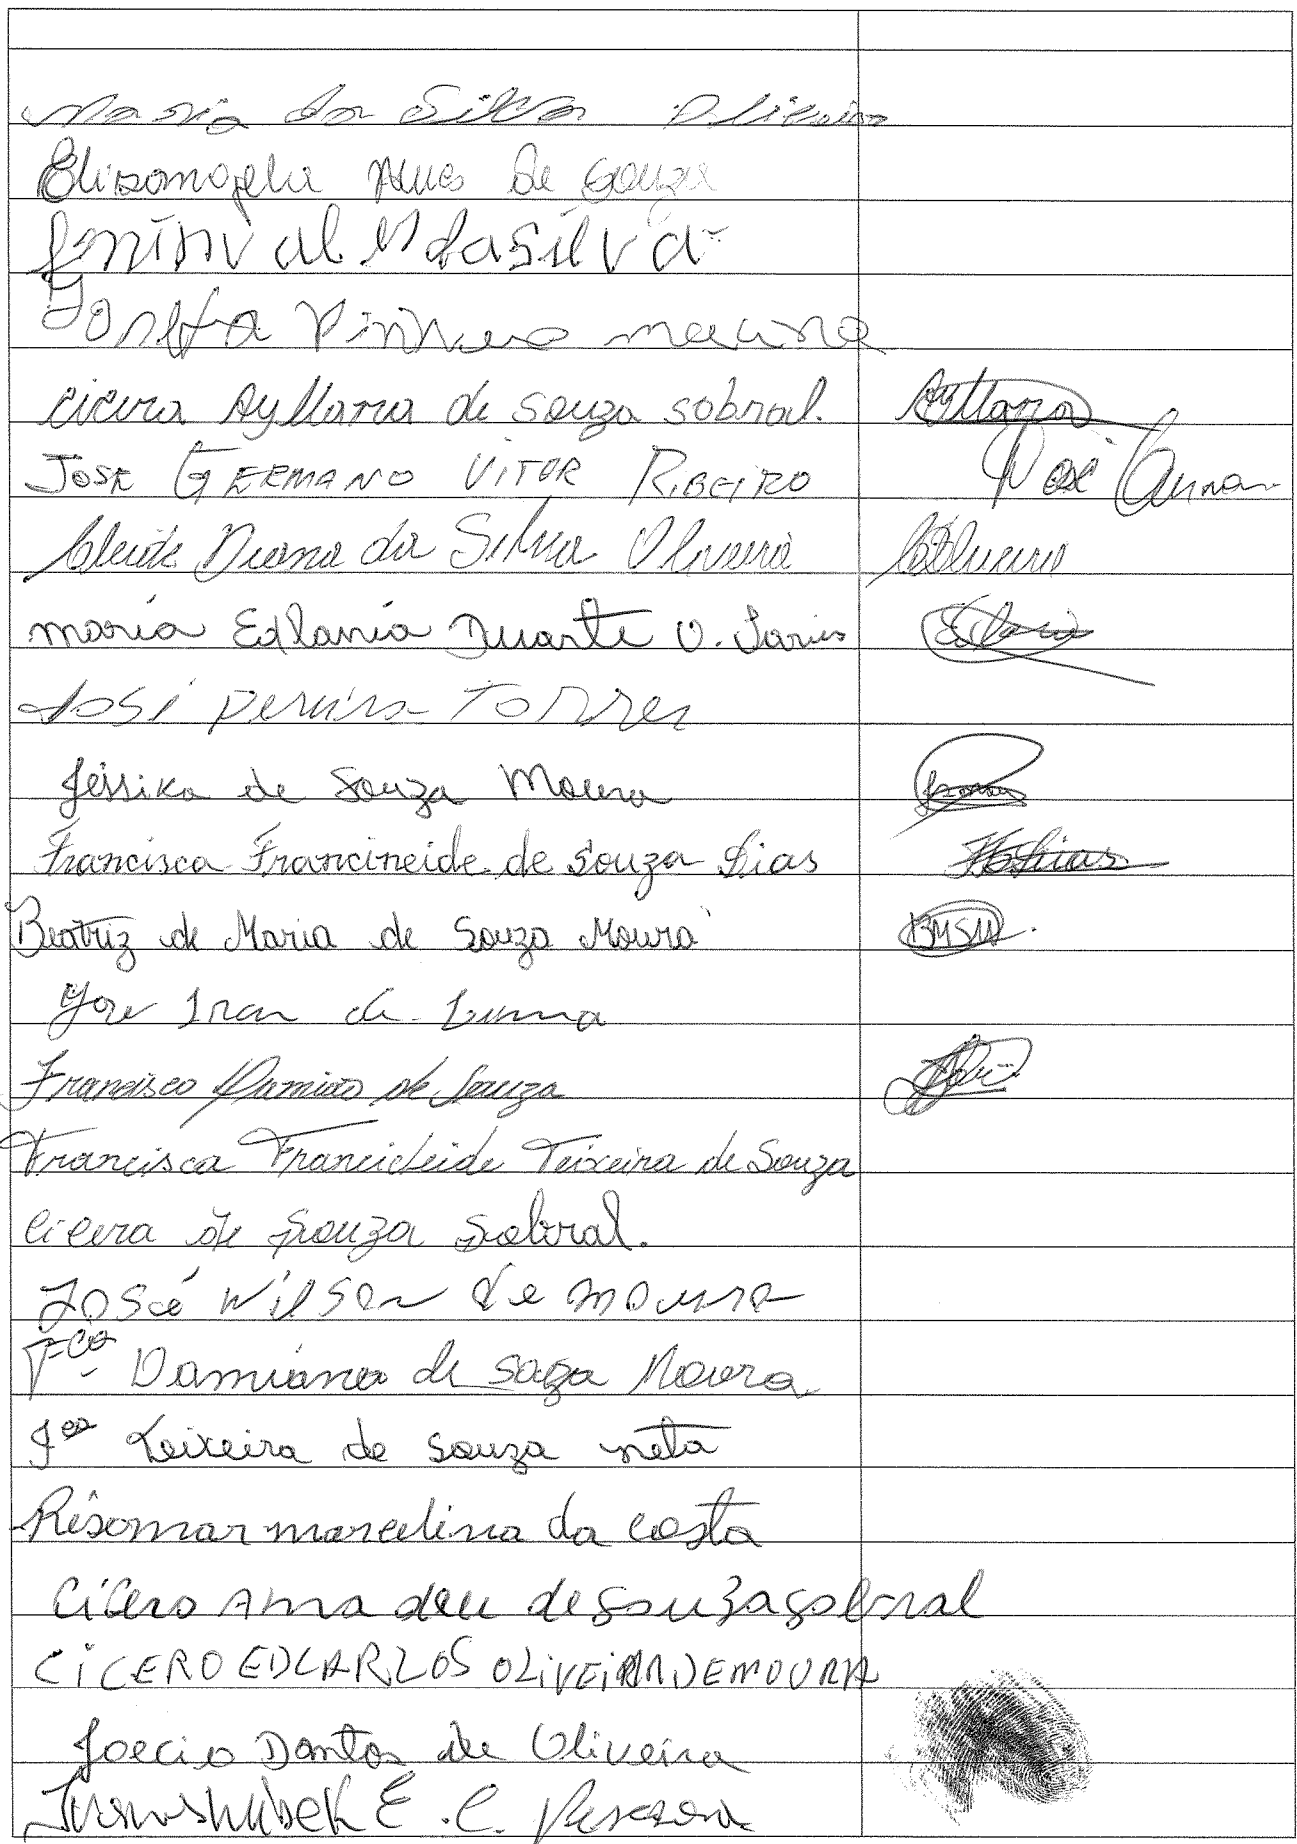 Maria da Silva Oliveira
Elisomogela Alves de Souza
da Silva
Pinheiro
Cicera Ayllana de Souza Sobral. Ayllana
JOSE GERMANO VITOR RIBEIRO
Cleide Diana da Silva Oliveira
Maria Edlania Duarte O. Edlania
José Pereira Torres
Jéssika de Souza Moura
Francisca Francineide de Souza Dias
Beatriz de Maria de Souza Moura BMSM.
José Iran de Lima
Francisco Damião de Souza
Francisca Francicleide Teixeira de Souza
Cicera de Souza Sobral.
José Wilson de Moura
Fca Damiana de Moura
Fca Teixeira de Souza neta
Risomar marcelina da costa
Cicero Amadeu de Souza Sobral
CICERO EDCARLOS OLIVEIRA DE MOURA
Joecio Dantas de Oliveira
E. C.